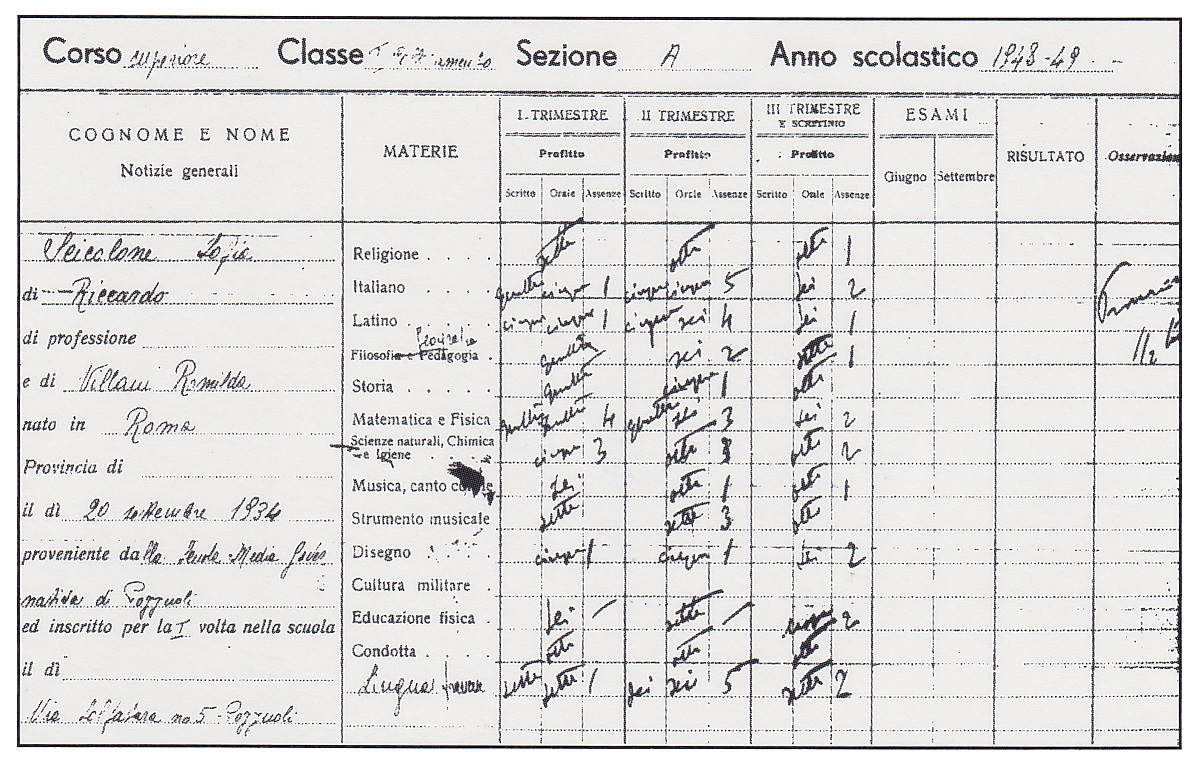 Corso superiore Classe I Sezione A Anno scolastico 1948-49
COGNOME E NOME
Notizie generali
MATERIE
I TRIMESTRE II TRIMESTRE III TRIMESTRE E SCRUTINIO ESAMI RISULTATO Osservazion
Profitto Profitto Profitto Giugno Settembre
Scritto Orale Assenze Scritto Orale Assenze Scritto Orale Assenze
Scicolone Sofia
di Riccardo
di professione
e di Villani Romilda
nato in Roma
Provincia di
il dì 20 settembre 1934
proveniente dalla Scuola Media Gover
nativa di Pozzuoli
ed inscritto per la I volta nella scuola
il dì
Via Solfatara no 5 - Pozzuoli
Religione sette otto otto 1
Italiano quattro cinque 1 cinque cinque 5 sei 2
Latino cinque cinque 1 cinque sei 4 sei 1
Geografia
Filosofia e Pedagogia quattro sei 2 sette 1
Storia quattro cinque 1 otto
Matematica e Fisica quattro quattro 4 quattro sei 3 sei 2
Scienze naturali, Chimica
e Igiene cinque 3 sette 3 sette 2
Musica, canto corale sei sette 1 sette 1
Strumento musicale sette sette 3 otto
Disegno cinque 1 cinque 1 sei 2
Cultura militare
Educazione fisica sei sette 2
Condotta otto otto otto
Lingua francese sette sette 1 sei sei 5 sette 2